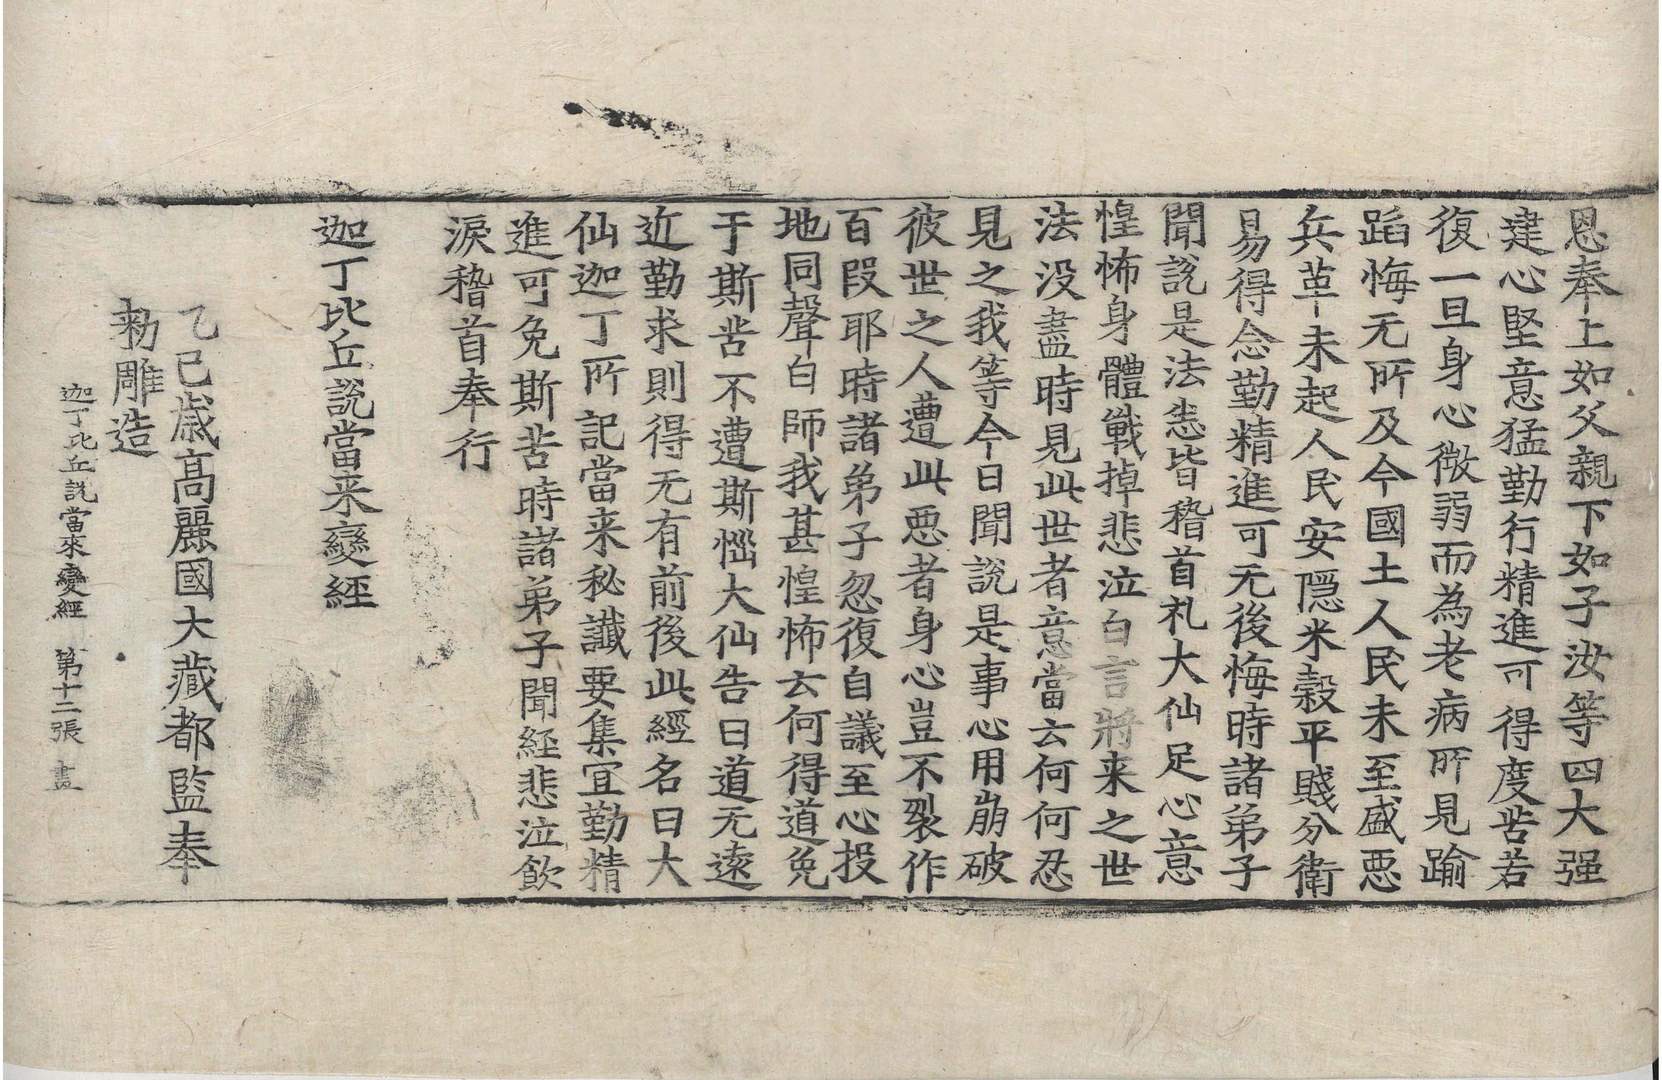 恩奉上如父親下如子汝等四大强
建心堅意猛勤行精進可得度苦若
復一旦身心微弱而為老病所見踰
蹈悔无所及今國土人民未至盛悪
兵革未起人民安隱米穀平賤分衛
易得念勤精進可无後悔時諸弟子
聞說是法悉皆稽首礼大仙足心意
惶怖身體戰掉悲泣白言將来之世
法没盡時見此世者意當云何何忍
見之我等今日聞說是事心用崩破
彼世之人遭此悪者身心豈不裂作
百段耶時諸弟子忽復自議至心投
地同聲白師我甚惶怖云何得道免
于斯苦不遭斯惱大仙告曰道无遠
近勤求則得无有前後此經名曰大
仙迦丁所記當来秘讖要集冝勤精
進可免斯苦時諸弟子聞經悲泣飲
淚稽首奉行
迦丁比丘說當来變經
乙巳歳高麗國大藏都監奉
勑雕造
迦丁比丘說當來變經 第十二張 畫